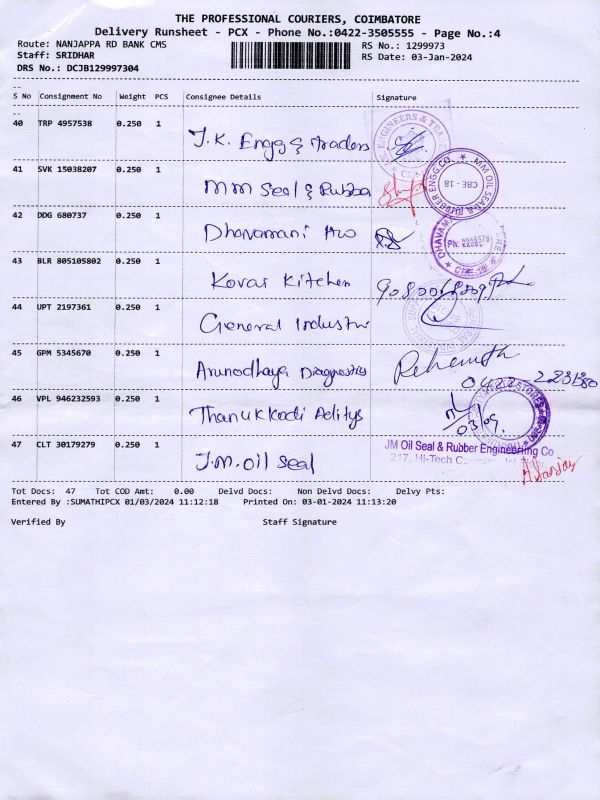 THE PROFESSIONAL COURIERS, COIMBATORE
Delivery Runsheet - PCX - Phone No.:0422-3505555 - Page No.:4
Route: NANJAPPA RD BANK CMS RS No.: 1299973
Staff: SRIDHAR RS Date: 03-Jan-2024
DRS No.: DCJB129997304
S No Consignment No Weight PCS Consignee Details Signature
40 TRP 4957538 0.250 1
J.K. Engg & traders
41 SVK 15038207 0.250 1
MM Seal & Rubba
42 DDG 680737 0.250 1
Dhavamani
43 BLR 805105802 0.250 1
Kovai Kitchen
44 UPT 2197361 0.250 1
General Industri
45 GPM 5345670 0.250 1
Arunodhaya Diagnostics
0422
46 VPL 946232593 0.250 1
Thanukkodi
03/09.
47 CLT 30179279 0.250 1
J.M. Oil Seal
JM Oil Seal & Rubber Engineering Co
217, Hi-Tech
MM OIL SEAL & RUBBER ENGG.CO.
CBE - 18
Tot Docs: 47 Tot COD Amt: 0.00 Delvd Docs: Non Delvd Docs: Delvy Pts:
Entered By :SUMATHIPCX 01/03/2024 11:12:18 Printed On: 03-01-2024 11:13:20
Verified By Staff Signature